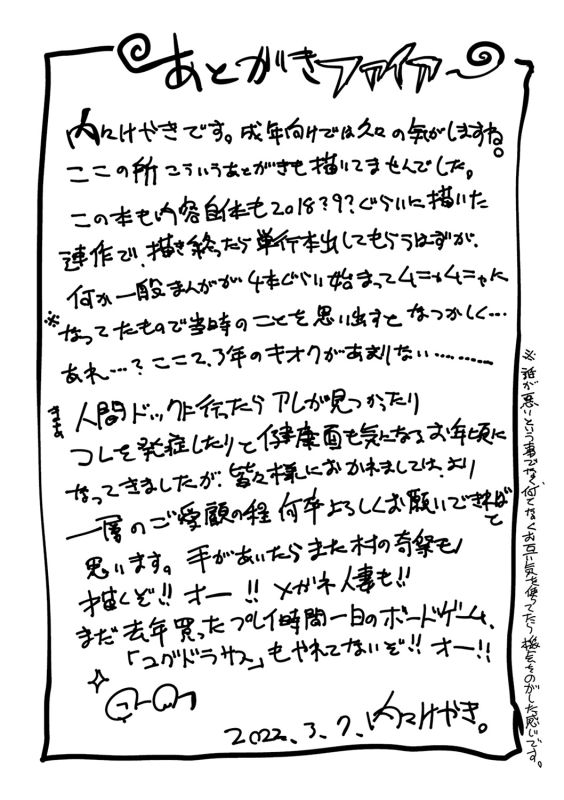 あとがきファイア
内々けやきです。成年向けでは久々の気がしますね。
ここの所こういうあとがきも描いてませんでした。
この本も内容自体も2018?9?ぐらいに描いた
連作で、描き終ったら単行本出してもらうはずが、
何か一般まんがが4本ぐらい始まってムニャムニャに
※なってたもので当時のことを思い出すとなつかしく…
あれ…?ここ2、3年のキオクがあまりない………
まぁ人間ドックに行ったらアレが見つかったり
コレを発症したりと健康面も気になるお年頃に
なってきましたが、皆々様におかれましては、より
一層のご愛顧の程何卒よろしくお願いできればと
思います。手があいたらまた村の奇祭も
描くぞ!!オー!!メガネ人妻も!!
まだ去年買ったプレイ時間一日のボードゲーム、
「ユグドラサス」もやれてないぞ!!オー!!
2022、3、7、内々けやき。
※誰が悪いという事でなく、何となくお互い気を使ってたら機会をのがした感じです。